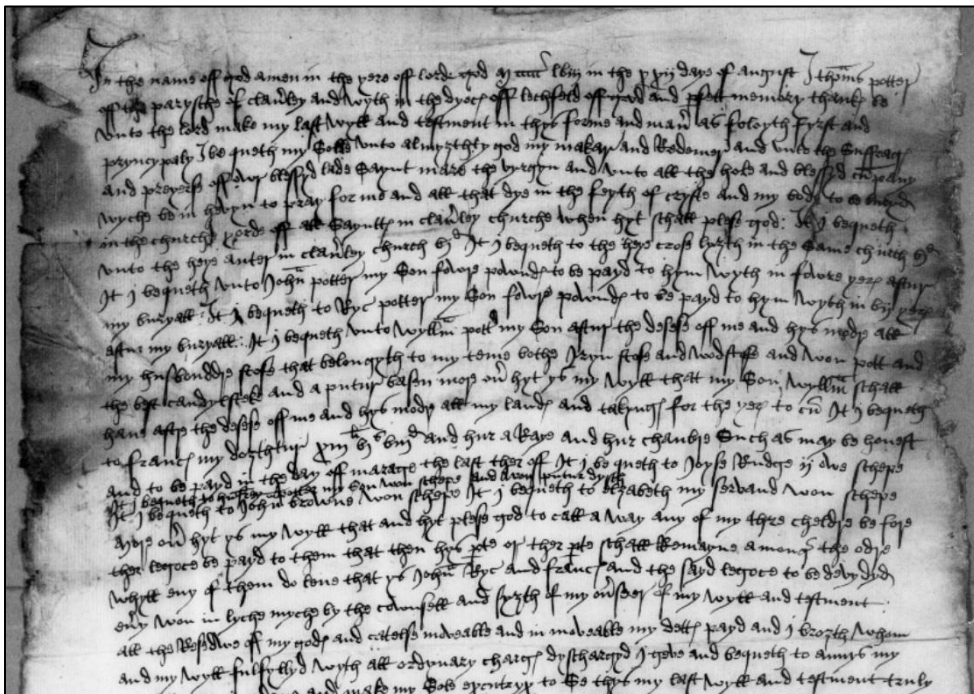 In the name off god amen in the yere off lorde god M ccccc lviij in the xxij daye of august I thoms potter
off the parysche of clawley and wyth in the dyoc off lechfeld off good and pfett memory thankes be
unto the lord make my last wyll and testment in thys forme and man as foloyth Fyrst and
pryncypaly I be queth my Solle unto almyzthty god my makar and Redemer and unto the Suffrages
and preyers off owr blessyd lade Saynt mare the vyrgyn and unto all the hole and blessyd cupany
wyche be in hevyn to pray for me and all that dye in the feyth of cryste and my bode to be buryd
in the churche yorde off all Saynttes in clawley churche when hyt schall plese god: It I bequeth
unto the heye auter in clawley church It I bequeth to the heye cross lyzth in the Same church
It I bequeth unto John potter my Son fowre powndes to be payd to hym wyth in fowre yeres aftur
my buryall: It I bequeth to Ryc potter my Son fowre powndes to be payd to hym wyth in yeres
aftur my buryall: It I bequeth unto wyllm pott my Son aftur the desese off me and hys moder all
my husbonddre stofe that belongyth to my teme bothe Iryn stofe and wodstofe and won pott and
the best candylsteke and a putur basen more ov hyt ys my wyll that my Son wyllm schall
have after the desese off me and hys moder all my landes and takynges for the yeres to cu It I bequeth
to Frances my dozthtur and hur a Raye and hur chambre Such as may be honest
and to be payd in the day off marage the last ther off It I be queth to Joyse Rudge ij owe schepe
It I bequeth to potter my Son won schepe and won putur dysch
It I bequeth to John browne won schepe It I bequeth to elzabeth my servand won schepe
More ov hyt ys my wyll that and hyt plese god to call a way any of my thre cheldre be fore
ther legoce be payd to them that then hys pte or ther pte schall Remayne amonge the odre
whyll eny of them do leve that ys John Ryc and Frances and the sayd legoce to be devydyd
evy won in lyche myche by the cownsell and syzth of my ov seer of my wyll and testment
all the Resedwe off my godes and catelse moveable and in moveable my dettes payd and I brozth whom
and my wyll fulfyllyd wyth all ordynary charges dyschargyd I geve and bequeth to annys my
and make my Sole to Se thys my last wyll and testment truly